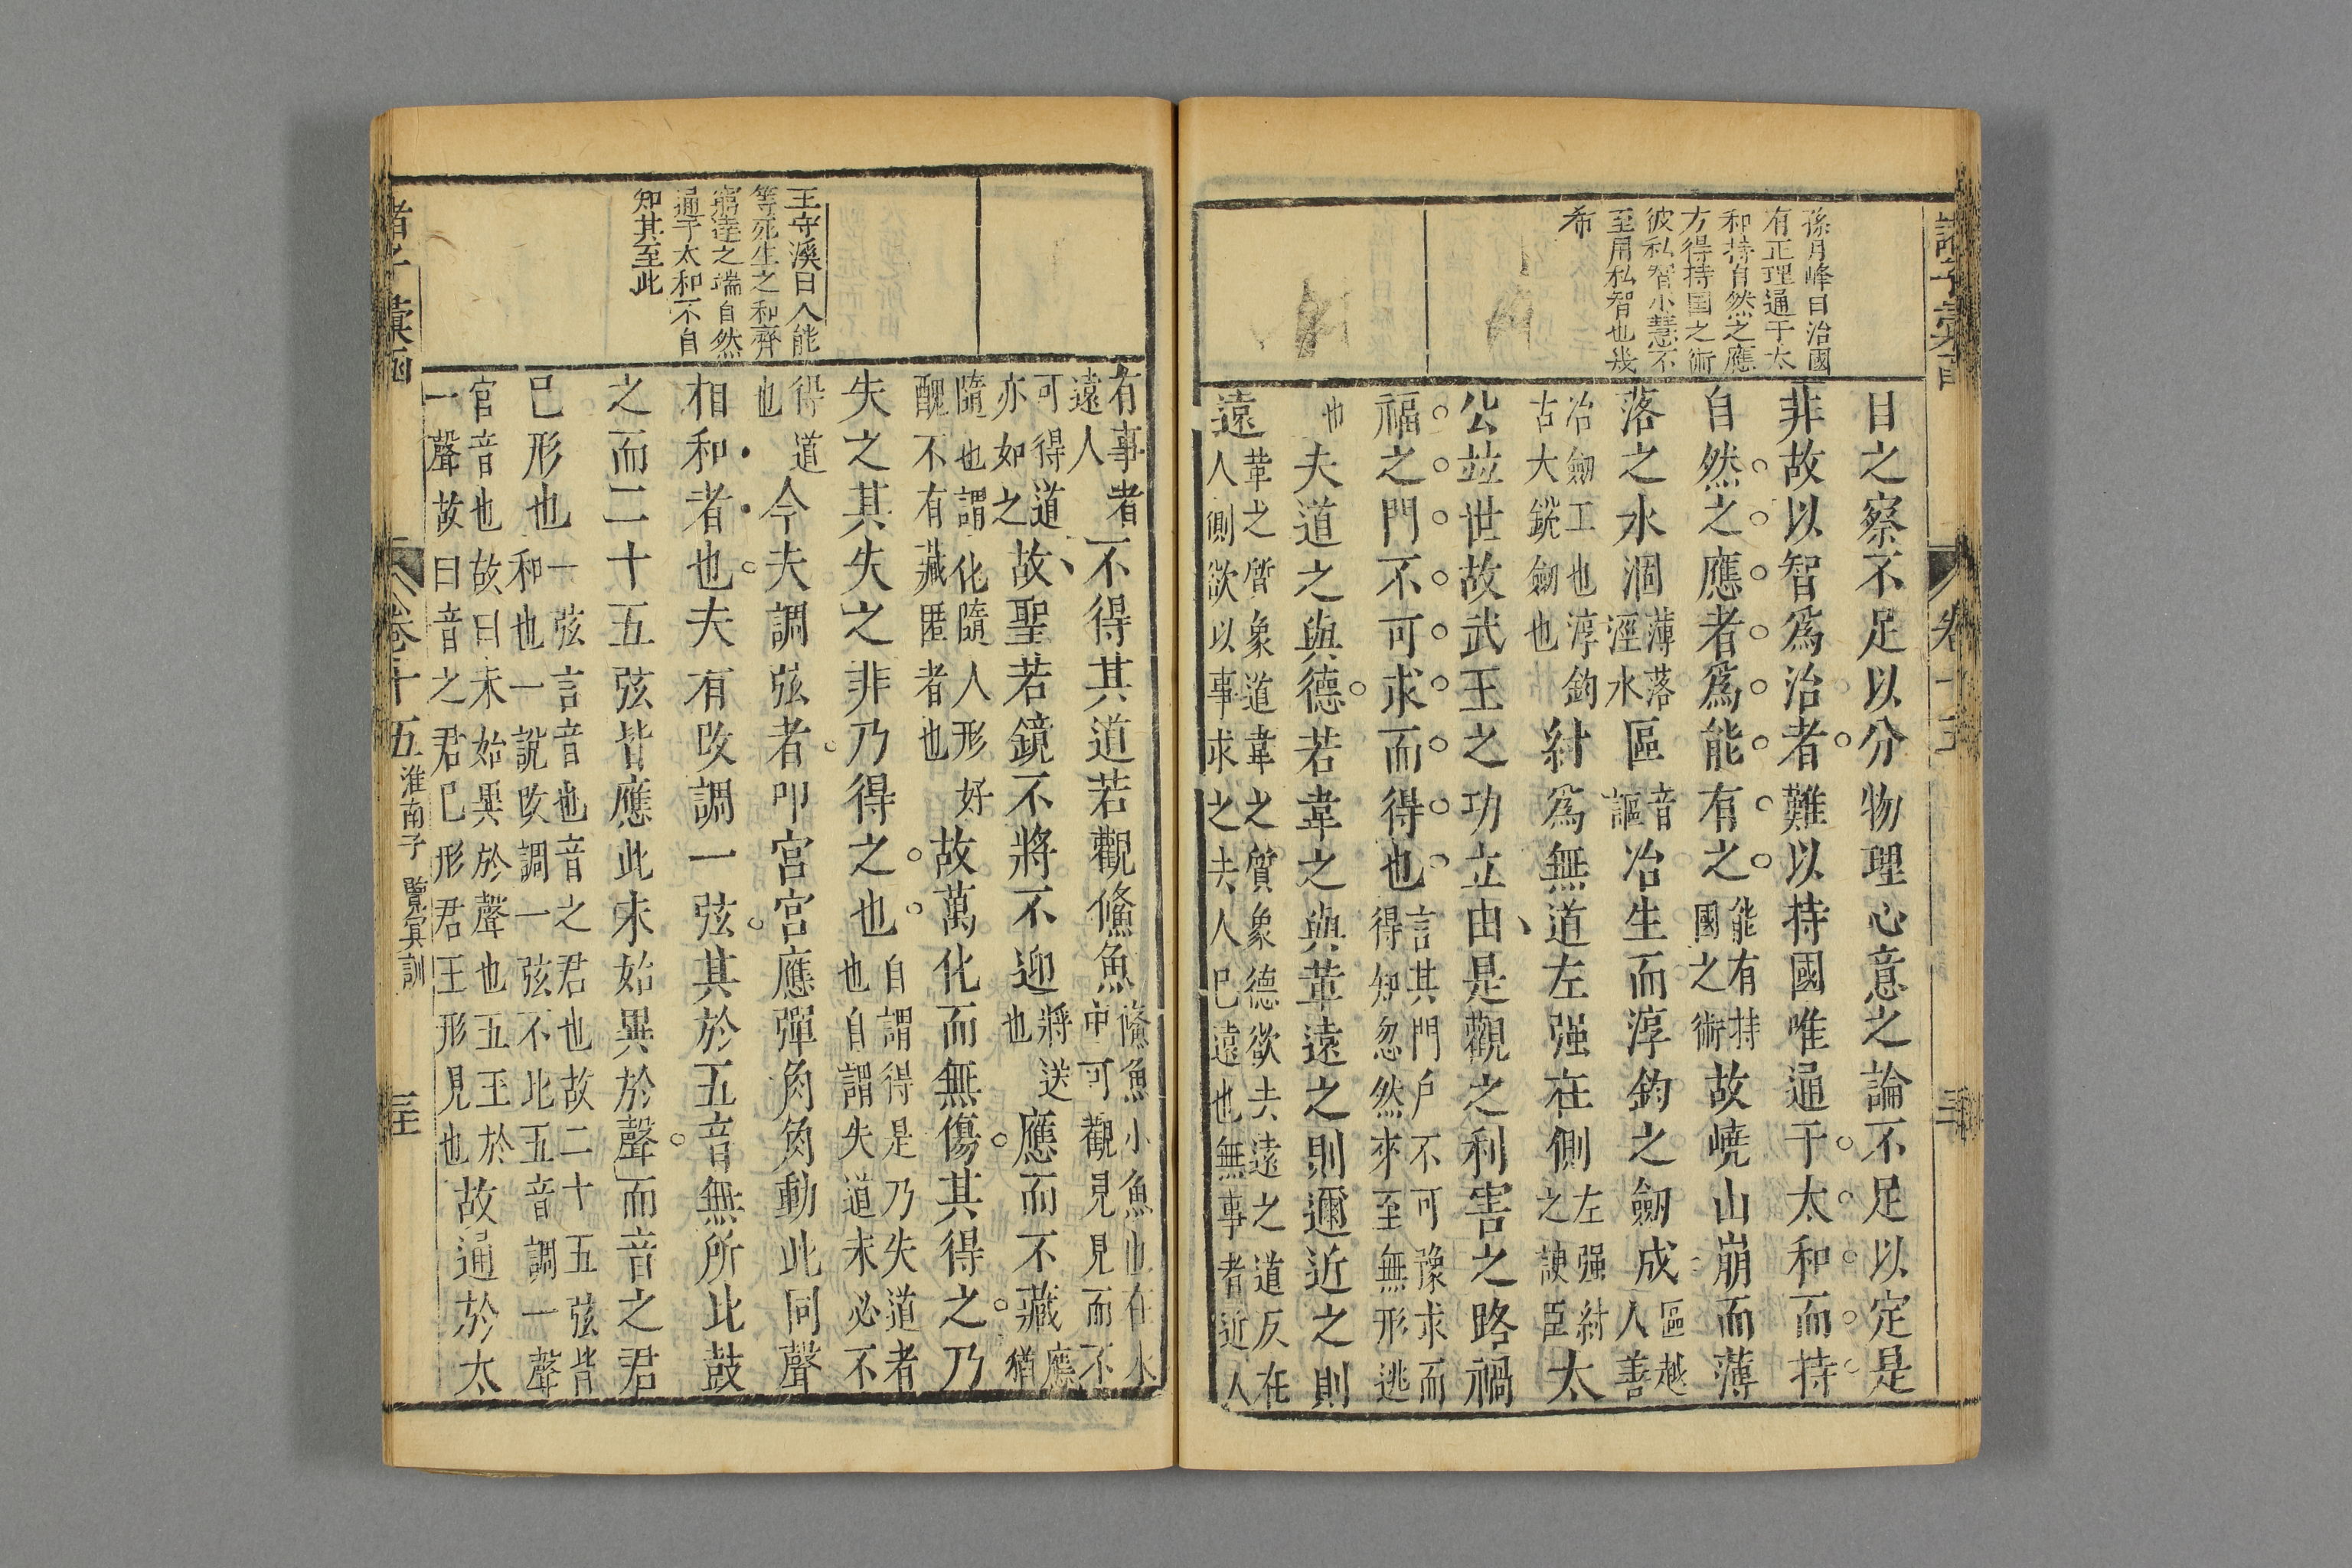 孫月峰曰治國
有正理通于太
和持自然之應
方得持国之術
彼私智小慧不
至用私智也幾
希
日之察不足以分物理心意之論不足以定是
非故以智爲治者難以持國唯通于太和而持
自然之應者爲能有之能有持國之術故嶢山崩而薄
落之水涸薄落涇水區音謳冶生而淳鈞之劒成區越人善
冶劒工也淳鈞古大銳劒也紂爲無道左强在側左强紂之諛臣太
公竝世故武王之功立由是觀之利害之路禍
福之門不可求而得也言其門戸不可豫求而得知忽然來至無形逃
也夫道之與德若韋之與革遠之則邇近之則
遠革之質象道韋之質象德欲去遠之道反在人側欲以事求之去人已遠也無事者近人
有事者遠人不得其道若觀鯈魚鯈魚小魚也在水中可觀見見而不
可得道亦如之故聖若鏡不將不迎將送也應而不藏應猶
隨也謂化隨人形好醜不有藏匿者也故萬化而無傷其得之乃
失之其失之非乃得之也自謂得是乃失道者也自謂失道未必不
得道也今夫調弦者叩宮宮應彈角角動此同聲
相和者也夫有改調一弦其於五音無所比鼓
之而二十五弦皆應此未始異於聲而音之君
已形也一弦言音也音之君也故二十五弦皆和也一說改調一弦不比五音調一聲
官音也故曰未始異於聲也五王於一聲故曰音之君已形君王形見也故通於太
王守溪曰人能
等死生之和齊
窮達之端自然
通于太和不自
知其至此
卷十五
淮南子 覽冥訓